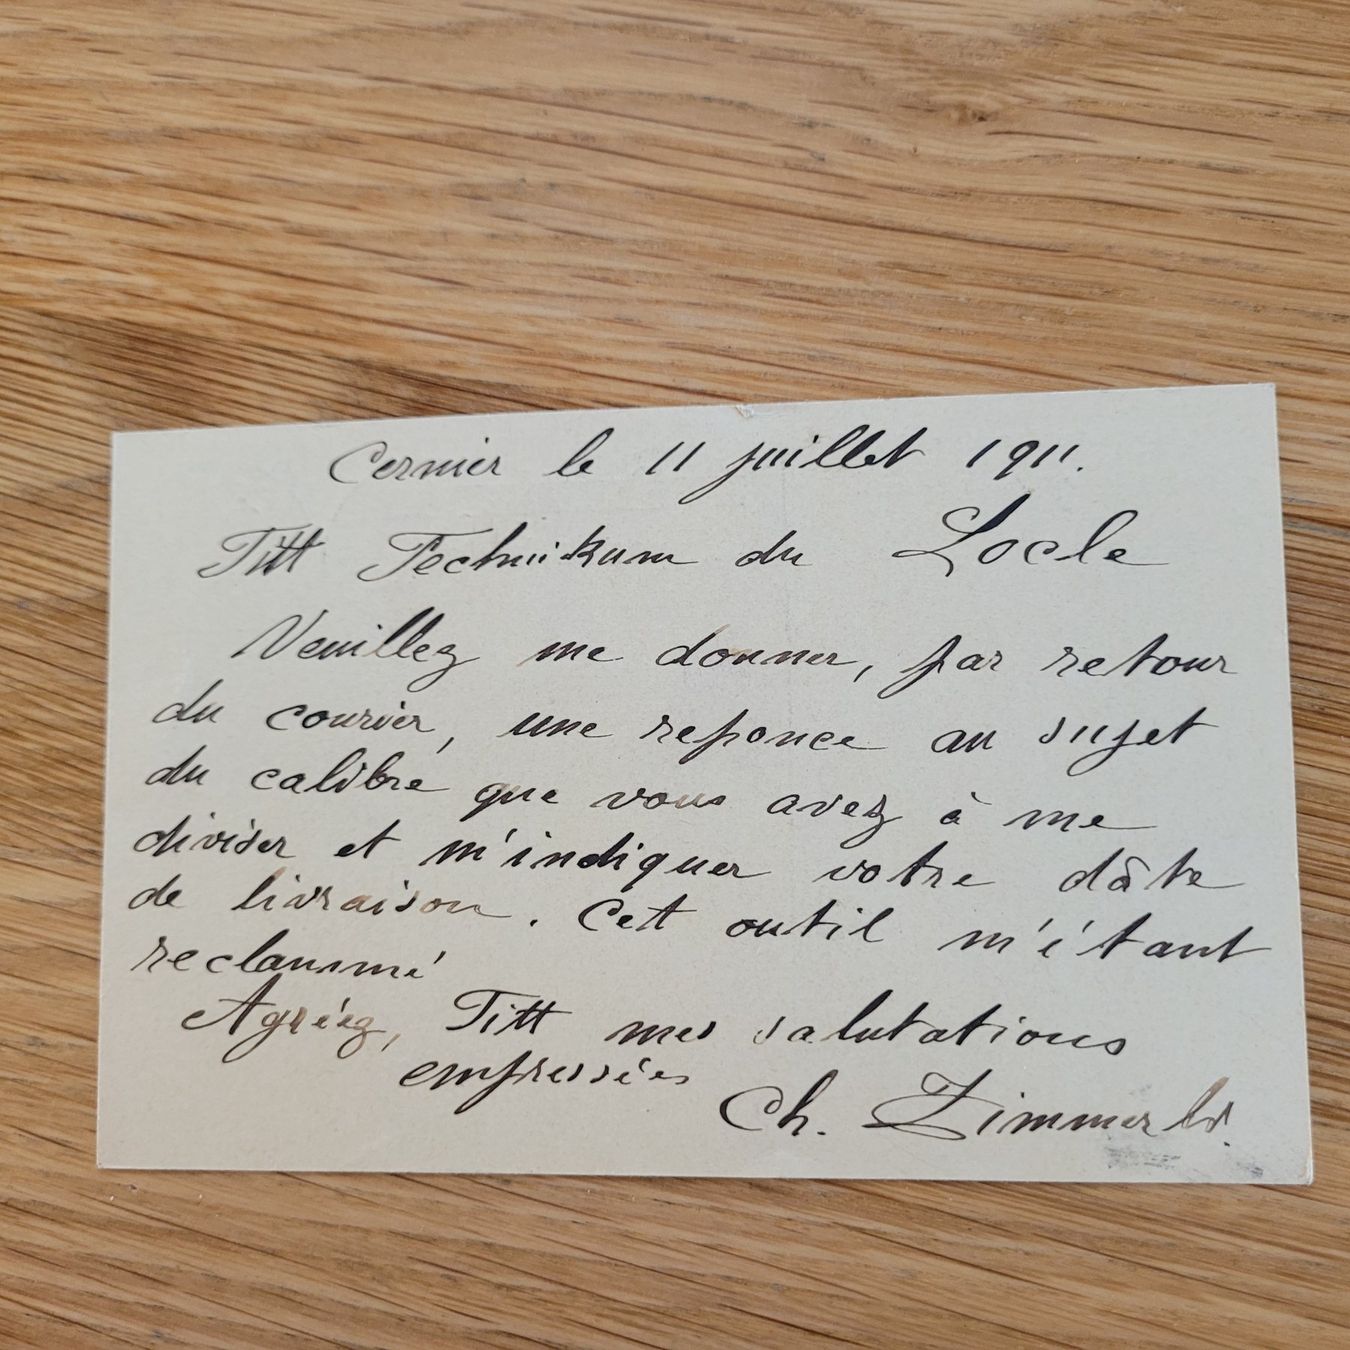 Cernier le 11 juillet 1911.
Titt Technikum du Locle
Veuillez me donner, par retour
du courier, une reponce au sujet
du calibre que vous avez à me
diviser et m'indiquer votre dâte
de livraison. Cet outil m'étant
reclammé
Agréez, Titt mes salutations
empressées
Ch. Zimmerli.